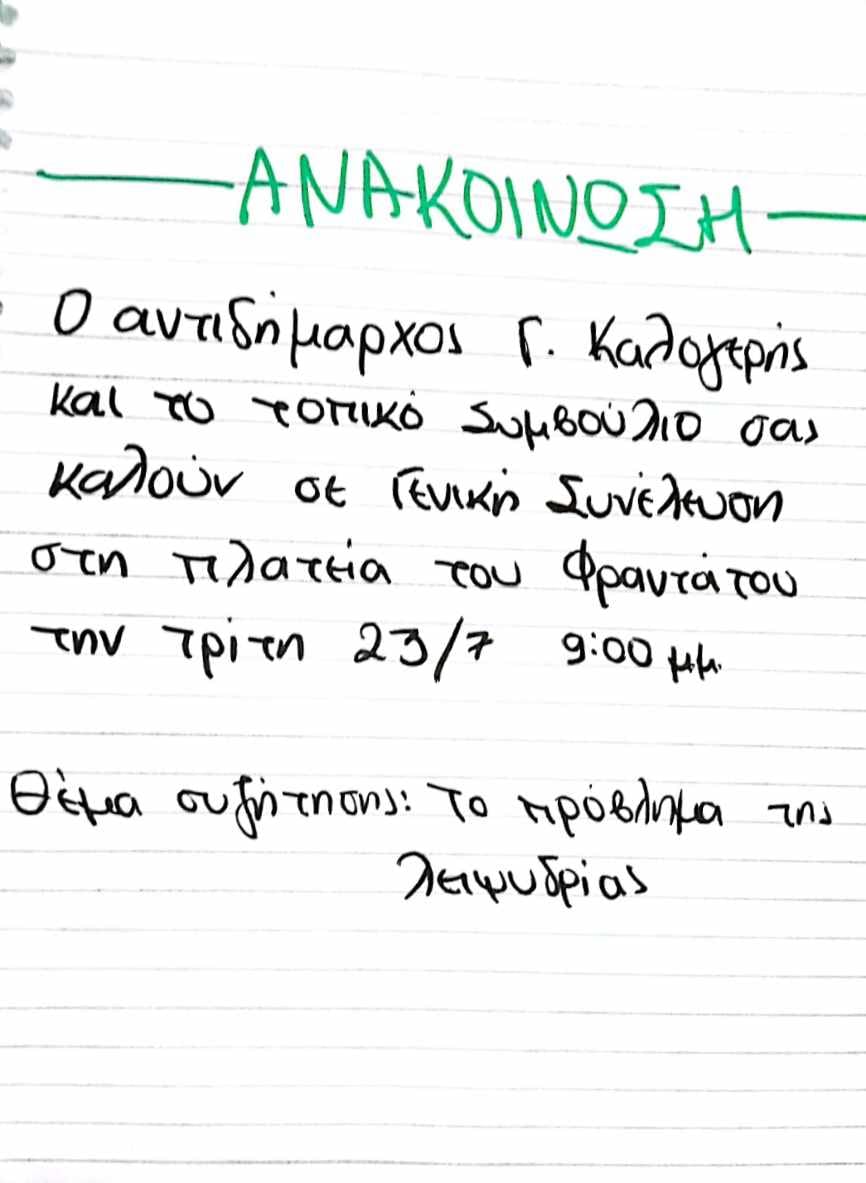 ΑΝΑΚΟΙΝΩΣΗ
Ο αντιδήμαρχος Γ. Καλογερής
και το τοπικό Συμβούλιο σας
καλούν σε Γενική Συνέλευση
στη πλατεία του Φραντάτου
την τρίτη 23/7 9:00 μμ.
Θέμα συζήτησης: Το πρόβλημα της
λειψυδρίας